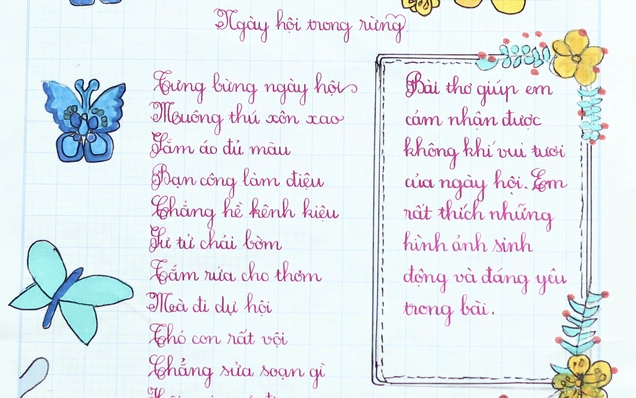 Ngày hội trong rừng
Tưng bừng ngày hội
Muông thú xôn xao
Sắm áo đủ màu
Bạn công làm điệu
Chẳng hề kênh kiệu
Sư tử chải bờm
Tắm rửa cho thơm
Mà đi dự hội
Thỏ con rất vội
Chẳng sửa soạn gì
Bài thơ giúp em
cảm nhận được
không khí vui tươi
của ngày hội. Em
rất thích những
hình ảnh sinh
động và đáng yêu
trong bài.